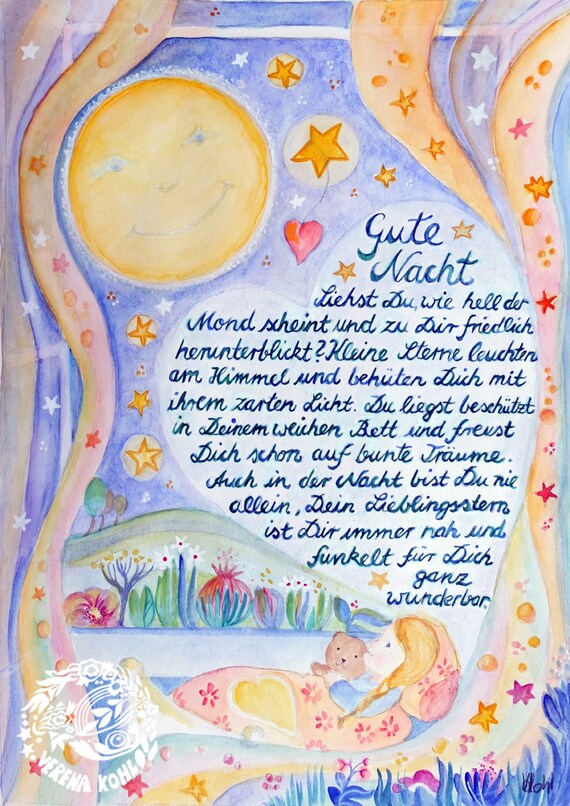 Gute
Nacht
Siehst Du, wie hell der
Mond scheint und zu Dir friedlich
herunterblickt? Kleine Sterne leuchten
am Himmel und behüten Dich mit
ihrem zarten Licht. Du liegst beschützt
in Deinem weichen Bett und freust
Dich schon auf bunte Träume.
Auch in der Nacht bist Du nie
allein, Dein Lieblingsstern
ist Dir immer nah und
funkelt für Dich
ganz
wunderbar.
VERENA KOHL
VKohl